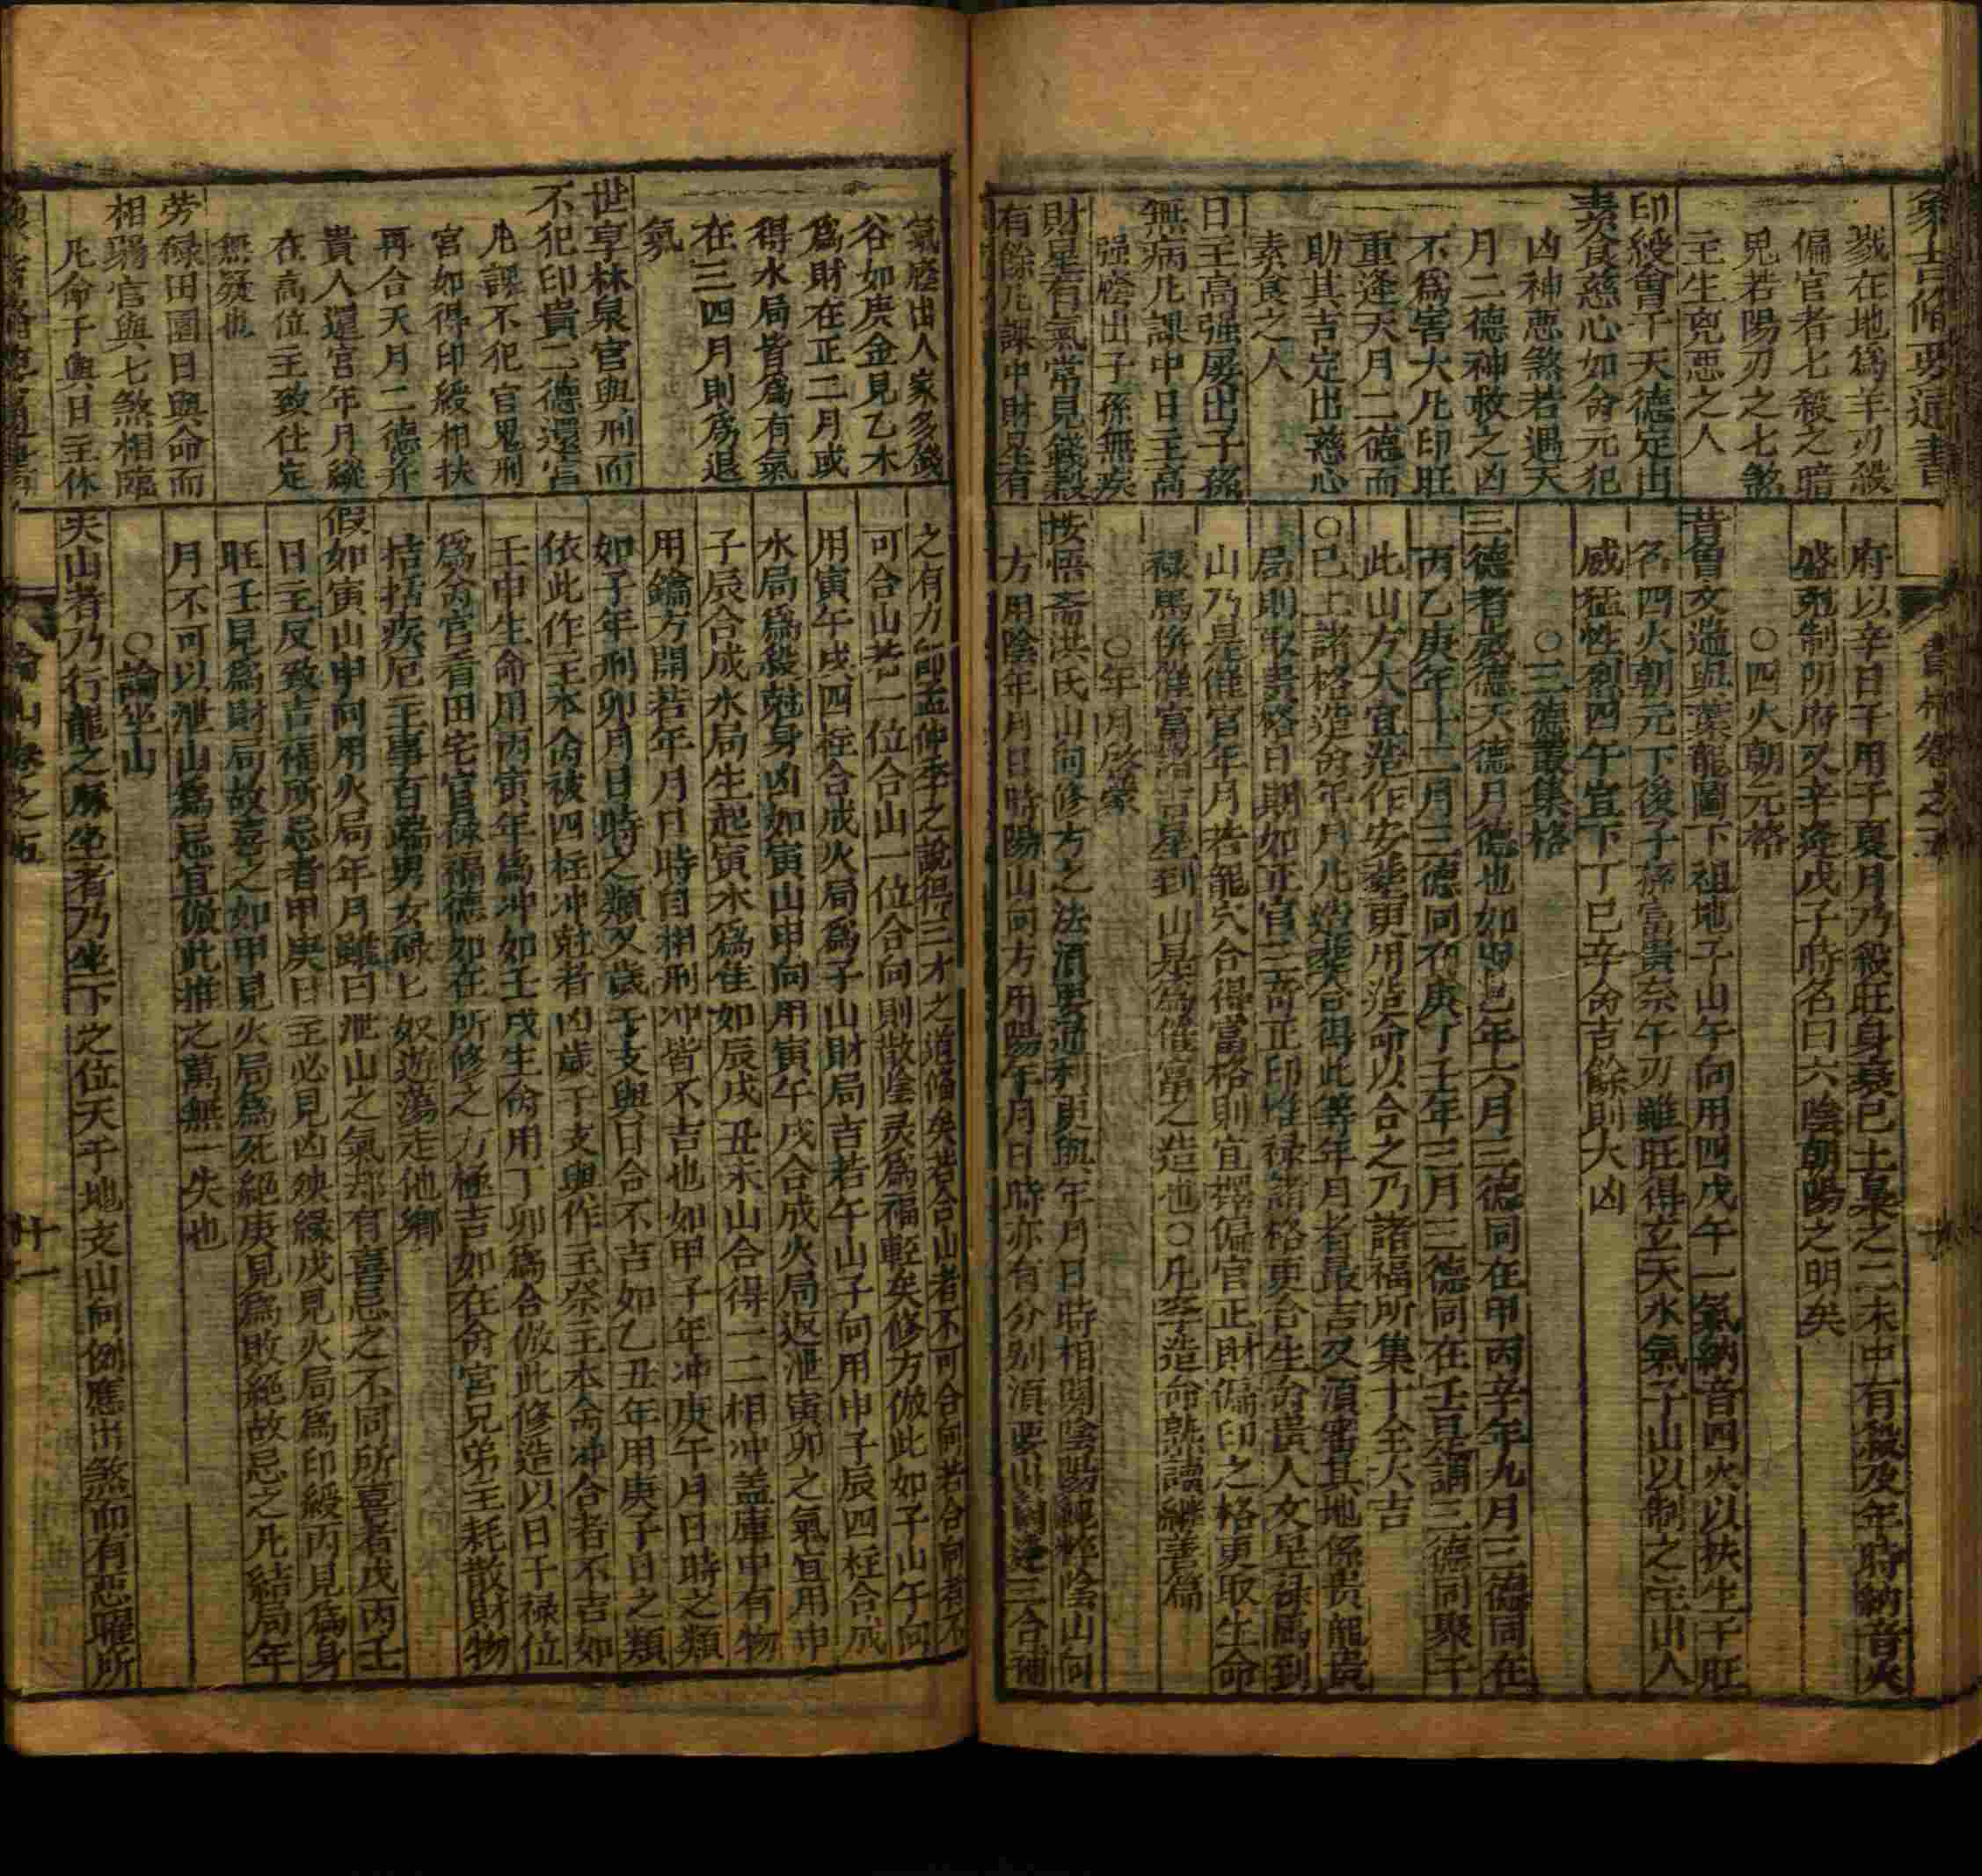 象吉備要通書
戮在地為羊刃殺
偏官者七殺之暗
鬼若陽刃之七煞
主生兇惡之人
印綬會子天德定出
素食慈心如命元犯
凶神惡煞若遇天
月二德神救之凶
不為害大凡印旺
重逢天月二德而
助其吉定出慈心
素食之人
日主高强屡出子孫
無病凡課中日主高
强庭出子孫無疾
財星有氣常見錢穀
有餘凡課中財星有
府以辛日干用子夏月乃殺旺身衰已土梟之二未中有殺及年時納音火
盛尅制所府又辛逢戊子時名曰六陰朝陽之明矣
○四火朝元格
昔曾文遄與葉龍圖下祖地子山午向用四戊午一氣納音四火以扶生干旺
名四火朝元下後子孫富貴奈午刃雖旺得玄天水氣子山以制之主出人
威猛性烈四午宜下丁巳辛命吉餘則大凶
○三德叢集格
三德者歲德天德月德也如甲巳年六月三德同在甲丙辛年九月三德同在
丙乙庚年十二月三德同在庚丁壬年三月三德同在壬是謂三德同聚于
此山方大宜造作安葬更用造命以合之乃諸福所集十全大吉
○巳上諸格造命年月凡造葬合得此等年月者最吉又湏審其地係貴龍貴
局則取貴格日期如正官三奇正印惟禄諸格更合生命貴人文星禄馬到
山乃是催官年月若龍穴合得富格則宜擇偏官正財偏印之格更取生命
禄馬併催富諸吉星到山是為催富之造也○凡李造命熟讀繼善篇
○年月啓蒙
按悟齋洪氏山向修方之法湏要通利更與年月日時相関陰陽純粹陰山向
方用陰年月日時陽山向方用陽年月日時亦有分别湏要山頭逢三合補
氣庭出人家多錢
谷如庚金見乙木
為財在正二月或
得水局皆為有氣
在三四月則為退
氣
世享林泉官與刑而
不犯印貴二德還宮
凡課不犯官鬼刑
宮如得印綬相扶
再合天月二德并
貴人還宮年月縱
在高位主致仕定
無疑也
劳碌田園日與命而
相弱官與七煞相臨
凡命子與日主休
之有力如孟仲季之說得三才之道備矣若合山者不可合向若合向者不
可合山若二位合山一位合向則散陰灵為福輕矣修方倣此如子山午向
用寅午戌四柱合成火局為子山財局吉若午山子向用申子辰四柱合成
水局為殺尅身凶如寅山申向用寅午戌合成火局返泄寅卯之氣宜用申
子辰合成水局生起寅木為佳如辰戌丑未山合得一二相冲盖庫中有物
用鑰方開若年月日時自相刑冲皆不吉也如甲子年冲庚午月日時之類
如子年刑卯月日時之類又歲干支與日合不吉如乙丑年用庚子日之類
依此作主本命被四柱冲尅者凶歲干支與作主祭主本命冲合者不吉如
壬申生命用丙寅年為冲如壬戌生命用丁卯為合倣此修造以日干禄位
為命官看田宅官禄福德如在所修之方極吉如在命宮兄弟主耗散財物
拮括疾厄主事百端男女碌七奴遊蕩走他鄉
假如寅山申向用火局年月雖曰泄山之氣却有喜忌之不同所喜者戊丙壬
日主反致吉権所忌者甲庚日主必見凶殃緣戊見火局為印綬丙見為身
旺壬見為財局故喜之如甲見火局為死絕庚見為敗絕故忌之凡結局年
月不可以泄山為忌宜倣此推之萬無一失也
○論坐山
夫山者乃行龍之脉坐者乃坐下之位天干地支山向例應出煞而有惡曜所